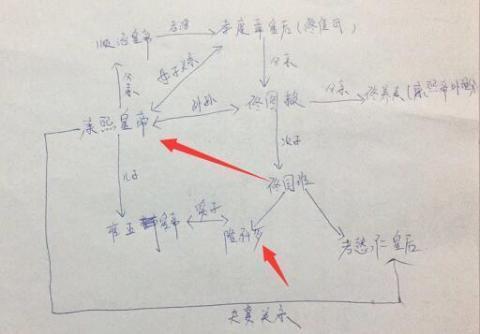 顺治皇帝
孝康章皇后(佟佳氏)
父亲
母子关系
父亲
康熙皇帝
外孙
佟图赖
父亲
佟养真(康熙帝外
次子
儿子
佟国维
雍正
皇帝
隆科多
孝懿仁皇后
夫妻关系